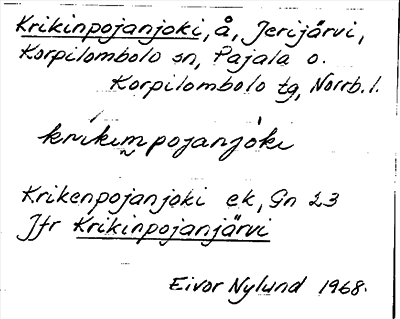 Krikinpojanjoki, å, Jerijärvi,
Korpilombolo sn, Pajala o.
Korpilombolo tg, Norrb. l.
krikim̰pojanjòki
Krikenpojanjoki ek, Gn 23
Jfr Krikinpojanjärvi
Eivor Nylund 1968.